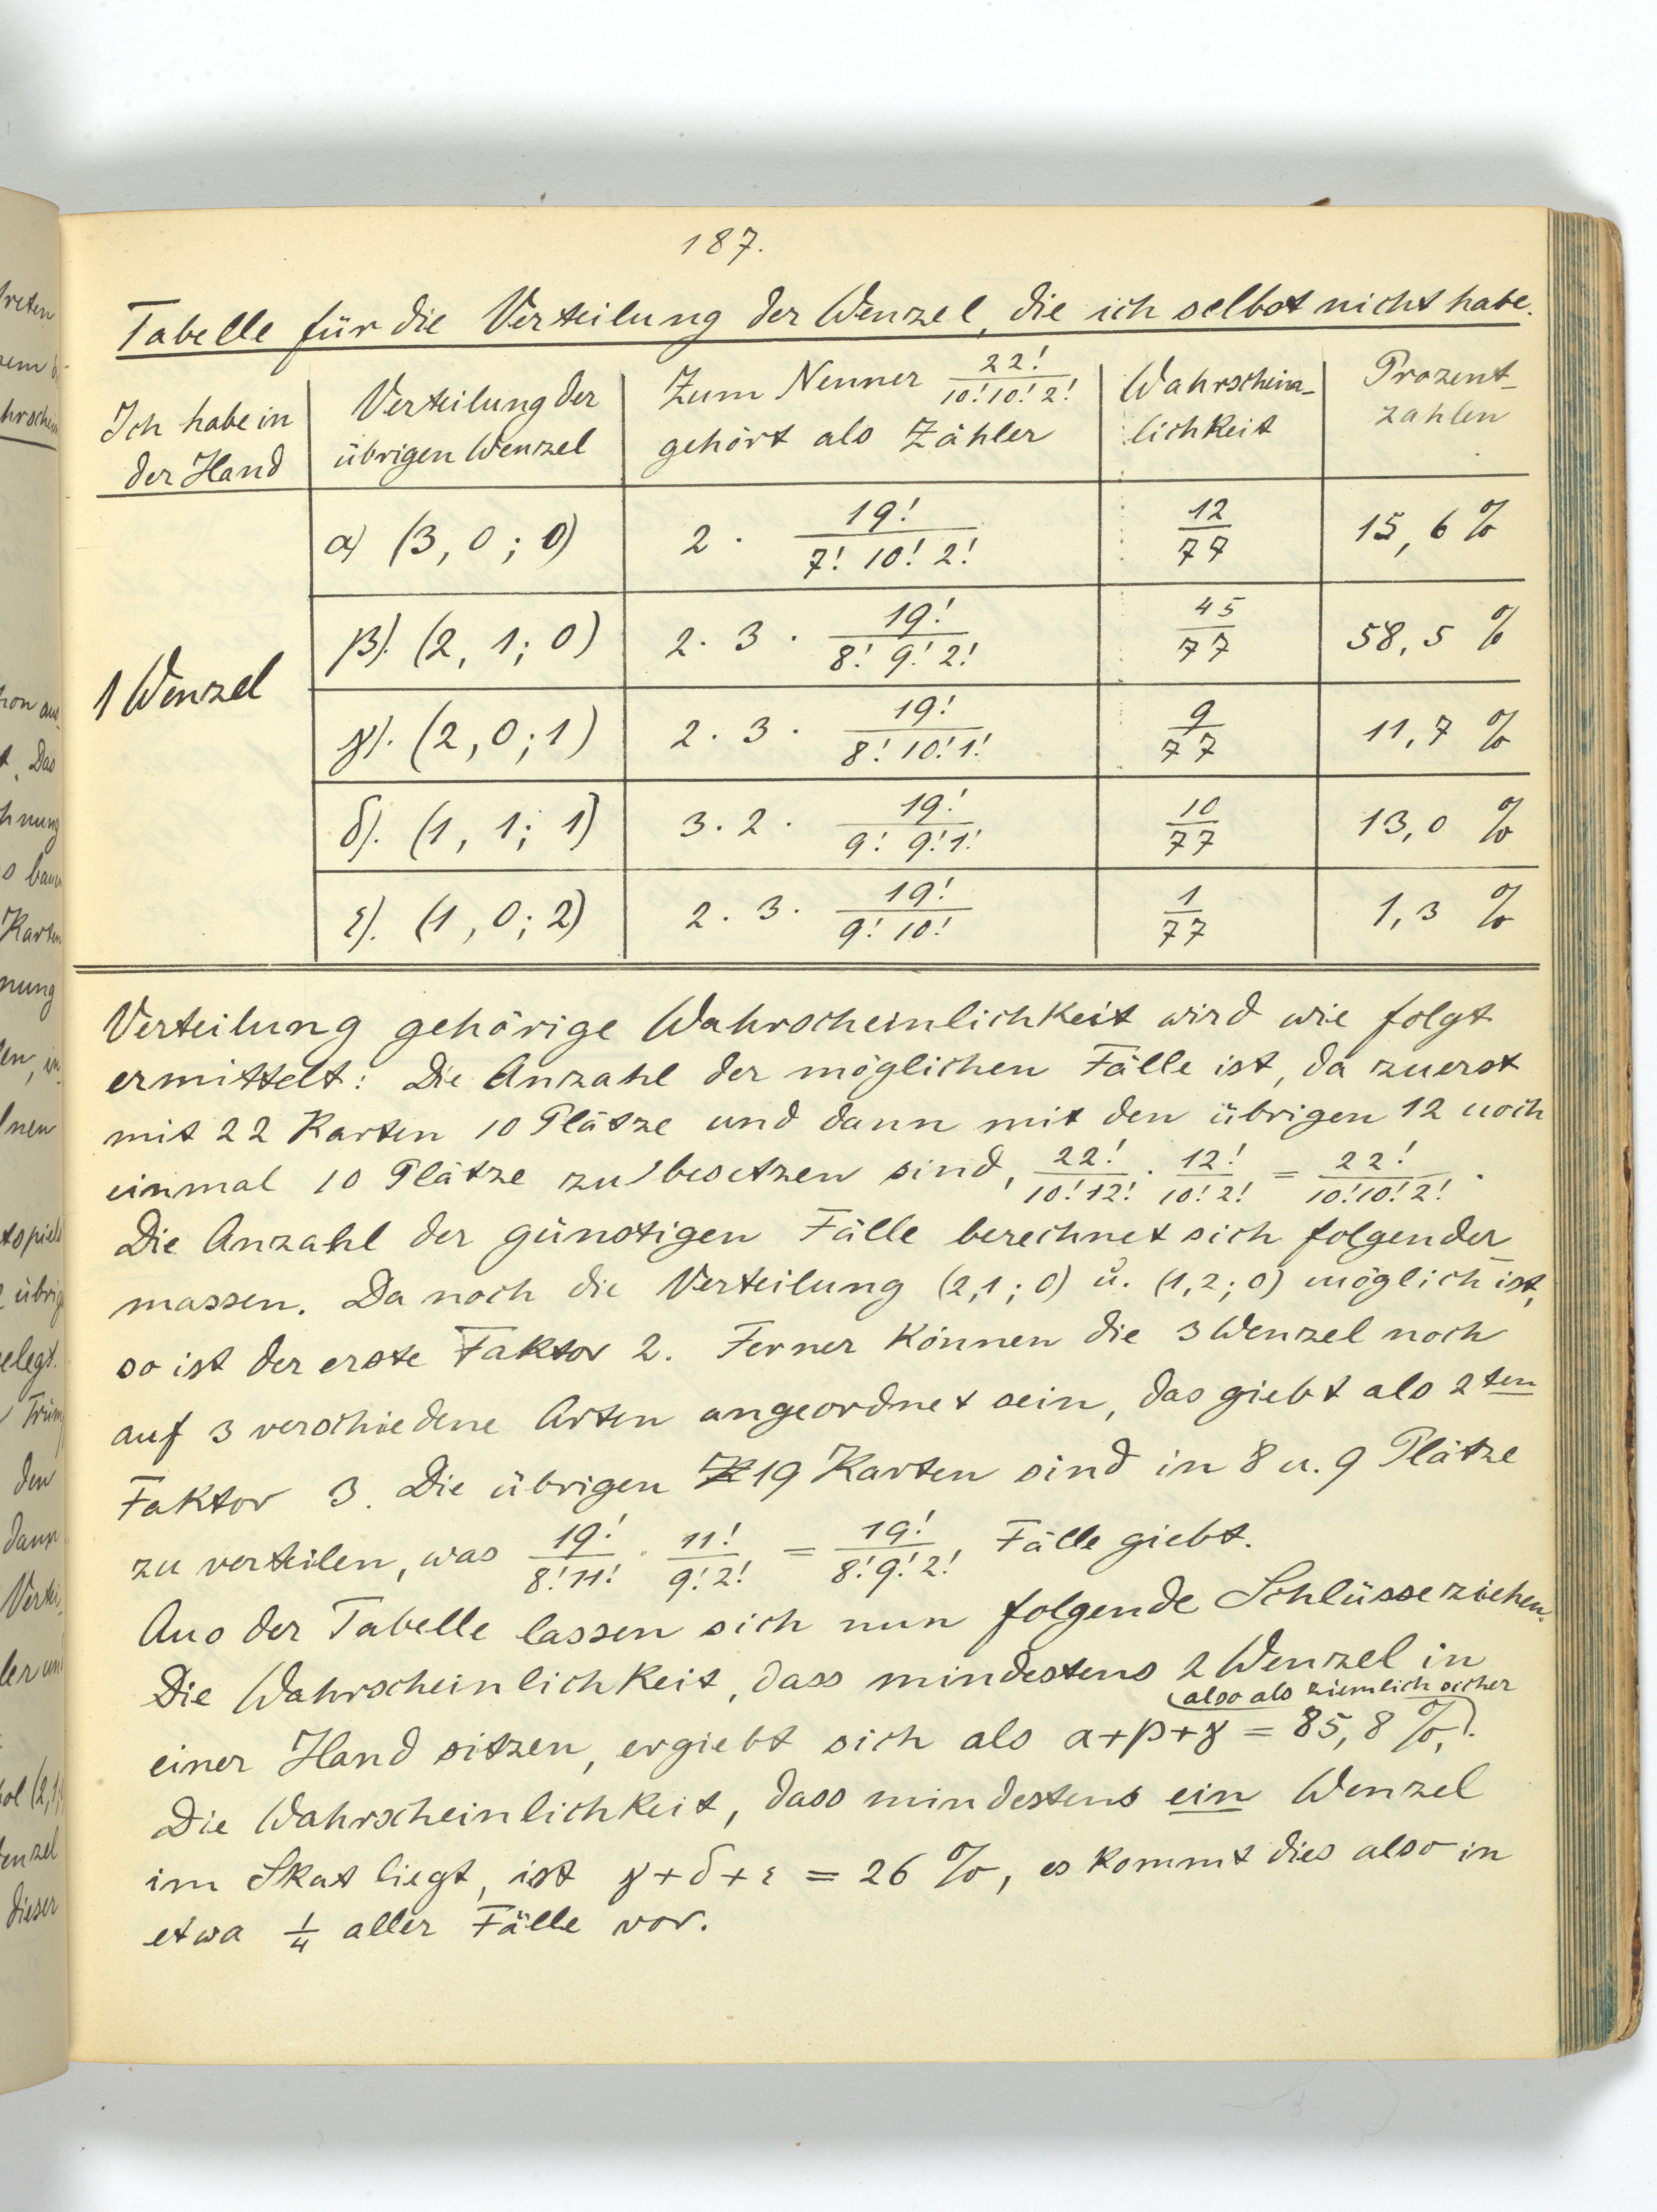 187.
Tabelle für die Verteilung der Wenzel, die ich selbst nicht habe.
Ich habe in der Hand | Verteilung der übrigen Wenzel | Zum Nenner 22!/10!10!2! gehört als Zähler | Wahrschein-lichkeit | Prozent-zahlen
1 Wenzel
α) (3, 0; 0) | 2 · 19!/7! 10! 2! | 12/77 | 15,6 %
β). (2, 1; 0) | 2 · 3 · 19!/8! 9! 2! | 45/77 | 58,5 %
γ). (2, 0; 1) | 2 · 3 · 19!/8! 10! 1! | 9/77 | 11,7 %
δ). (1, 1; 1) | 3 · 2 · 19!/9! 9! 1! | 10/77 | 13,0 %
ε). (1, 0; 2) | 2 · 3 · 19!/9! 10! | 1/77 | 1,3 %
Verteilung gehörige Wahrscheinlichkeit wird wie folgt
ermittelt: Die Anzahl der möglichen Fälle ist, da zuerst
mit 22 Karten 10 Plätze und dann mit den übrigen 12 noch
einmal 10 Plätze zu besetzen sind, 22!/10!12! · 12!/10!2! = 22!/10!10!2! .
Die Anzahl der günstigen Fälle berechnet sich folgender
massen. Da noch die Verteilung (2,1; 0) u. (1,2; 0) möglich ist,
so ist der erste Faktor 2. Ferner können die 3 Wenzel noch
auf 3 verschiedene Arten angeordnet sein, das giebt als 2ten
Faktor 3. Die übrigen 19 Karten sind in 8 u. 9 Plätze
zu verteilen, was 19!/8!11! · 11!/9!2! = 19!/8!9!2! Fälle giebt.
Aus der Tabelle lassen sich nun folgende Schlüsse ziehen.
Die Wahrscheinlichkeit, dass mindestens 2 Wenzel in
einer Hand sitzen, ergiebt sich als α+β+γ = 85,8 %, (also als ziemlich sicher).
Die Wahrscheinlichkeit, dass mindestens ein Wenzel
im Skat liegt, ist γ+δ+ε = 26 %, es kommt dies also in
etwa 1/4 aller Fälle vor.